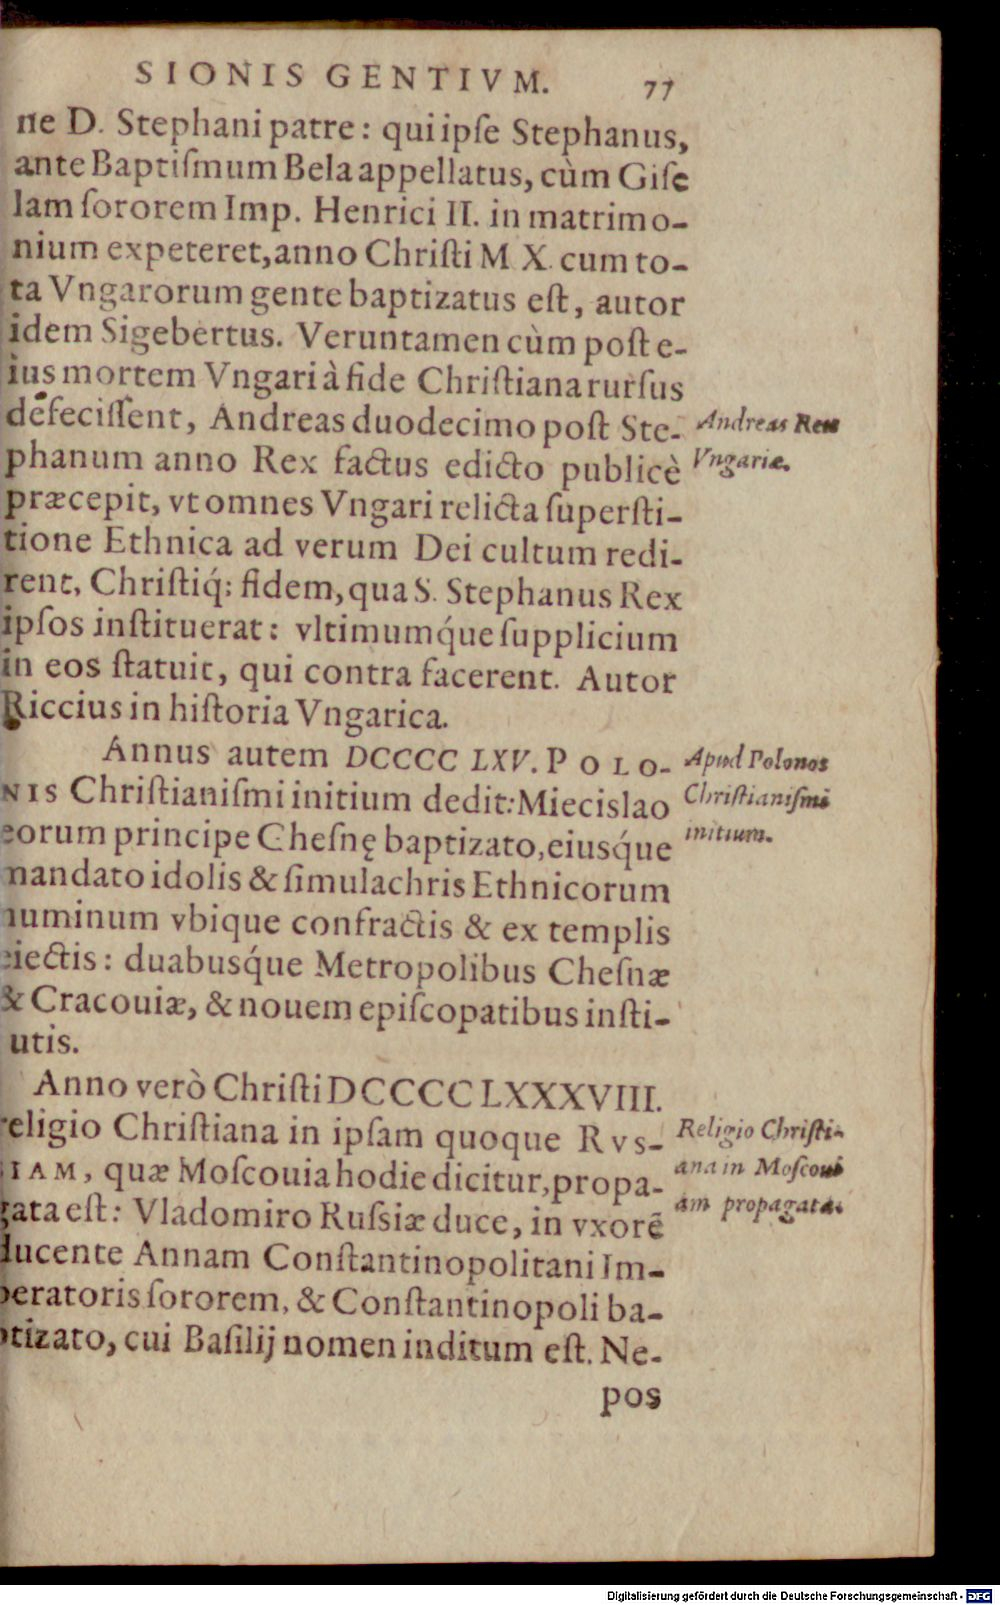 SIONIS GENTIVM. 77
ne D. Stephani patre: qui ipſe Stephanus,
ante Baptiſmum Bela appellatus, cùm Giſe
lam ſororem Imp. Henrici II. in matrimo-
nium expeteret, anno Chriſti M X. cum to-
ta Vngarorum gente baptizatus eſt, autor
idem Sigebertus. Veruntamen cùm poſt e-
ius mortem Vngari à fide Chriſtiana rurſus
defeciſſent, Andreas duodecimo poſt Ste-
phanum anno Rex factus edicto publicè
præcepit, vt omnes Vngari relicta ſuperſti-
tione Ethnica ad verum Dei cultum redi-
rent, Chriſtiq́; fidem, qua S. Stephanus Rex
ipſos inſtituerat: vltimumq́ue ſupplicium
in eos ſtatuit, qui contra facerent. Autor
Riccius in hiſtoria Vngarica.
Andreas Rex
Vngariæ.
Annus autem DCCCC LXV. POLO-
NIS Chriſtianiſmi initium dedit: Miecislao
eorum principe Cheſnę baptizato, eiusq́ue
mandato idolis & ſimulachris Ethnicorum
numinum vbique confractis & ex templis
eiectis: duabusq́ue Metropolibus Cheſnæ
& Cracouiæ, & nouem epiſcopatibus inſti-
utis.
Apud Polonos
Chriſtianiſmi
initium.
Anno verò Chriſti DCCCC LXXXVIII.
religio Chriſtiana in ipſam quoque RVS-
SIAM, quæ Moſcouia hodie dicitur, propa-
gata eſt: Vladomiro Ruſsiæ duce, in vxorē
ducente Annam Conſtantinopolitani Im-
peratoris ſororem, & Conſtantinopoli ba-
ptizato, cui Baſilij nomen inditum eſt. Ne-
pos
Religio Chriſti-
ana in Moſcoui
am propagata.
Digitalisierung gefördert durch die Deutsche Forschungsgemeinschaft - DFG